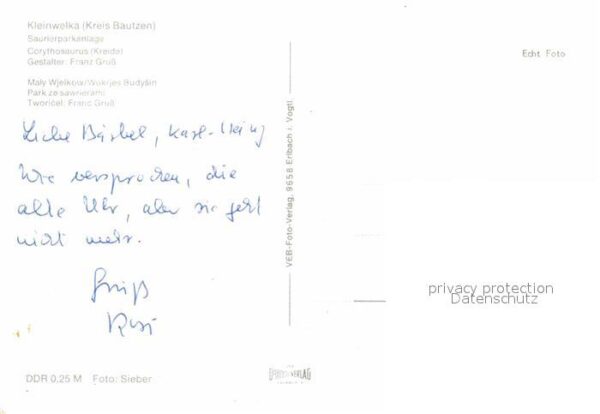 Kleinwelka (Kreis Bautzen)
Saurierparkanlage
Corythosaurus (Kreide)
Gestalter: Franz Gruß
Mały Wjelkow/Wokrjes Budyšin
Park ze sawrierami
Tworićel: Franc Gruß
Echt Foto
Liebe Bärbel, Karl-Heinz
Wie versprochen, die
alte Uhr, aber sie geht
nicht mehr.
Gruß
Rosi
VEB-Foto-Verlag, 9658 Erlbach i. Vogtl.
privacy protection
Datenschutz
DDR 0,25 M Foto: Sieber